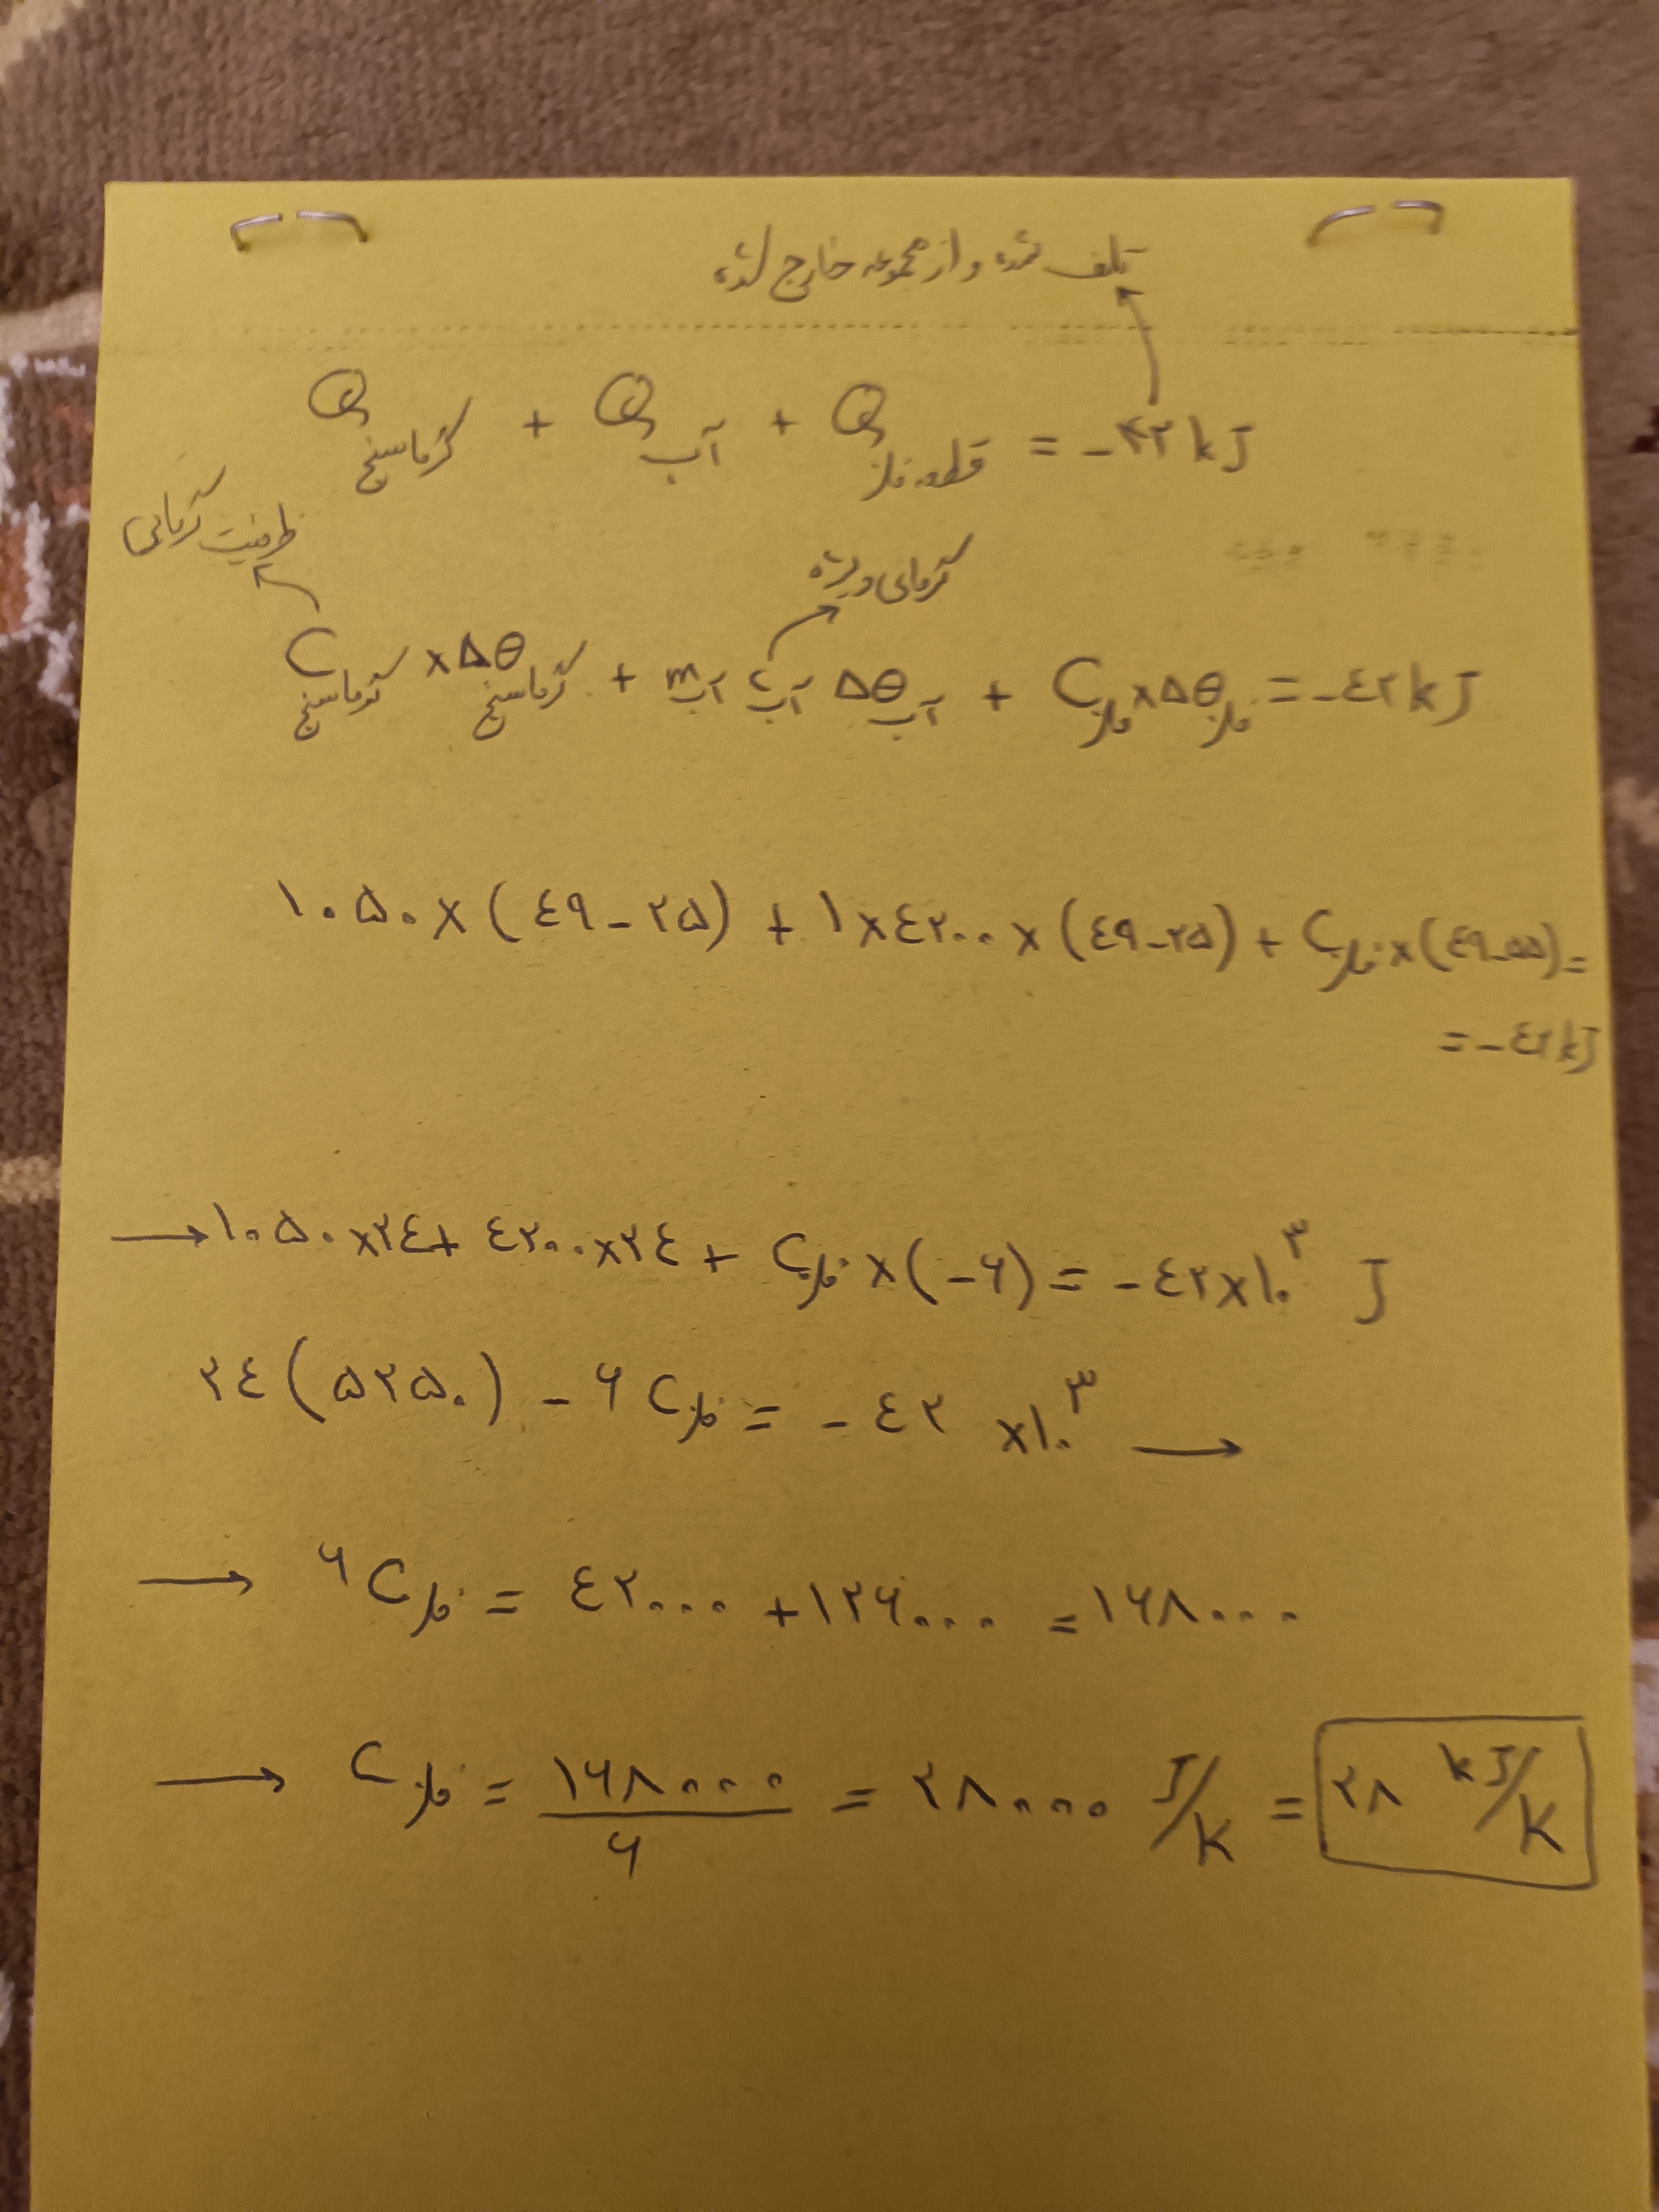 تلف شده و از مجموعه خارج شده
Q گرماسنج + Q آب + Q قطعه فلز = -۴۲ kJ
ظرفیت گرمایی
گرمای ویژه
C گرماسنج × Δθ گرماسنج + m آب c آب Δθ آب + C فلز × Δθ فلز = -٤۲ kJ
۱۰۵۰ × (٤۹ - ۲۵) + ۱ × ٤۲۰۰ × (٤۹ - ۲۵) + C فلز × (٤۹ - ۵۵) =
= -٤۲ kJ
→ ۱۰۵۰ × ۲٤ + ٤۲۰۰ × ۲٤ + C فلز × (-۶) = -٤۲ × ۱۰^۳ J
۲٤ (۵۲۵۰) - ۶ C فلز = -٤۲ × ۱۰^۳ →
→ ۶ C فلز = ٤۲۰۰۰ + ۱۲۶۰۰۰ = ۱۶۸۰۰۰
→ C فلز = ۱۶۸۰۰۰ / ۶ = ۲۸۰۰۰ J/K = ۲۸ kJ/K